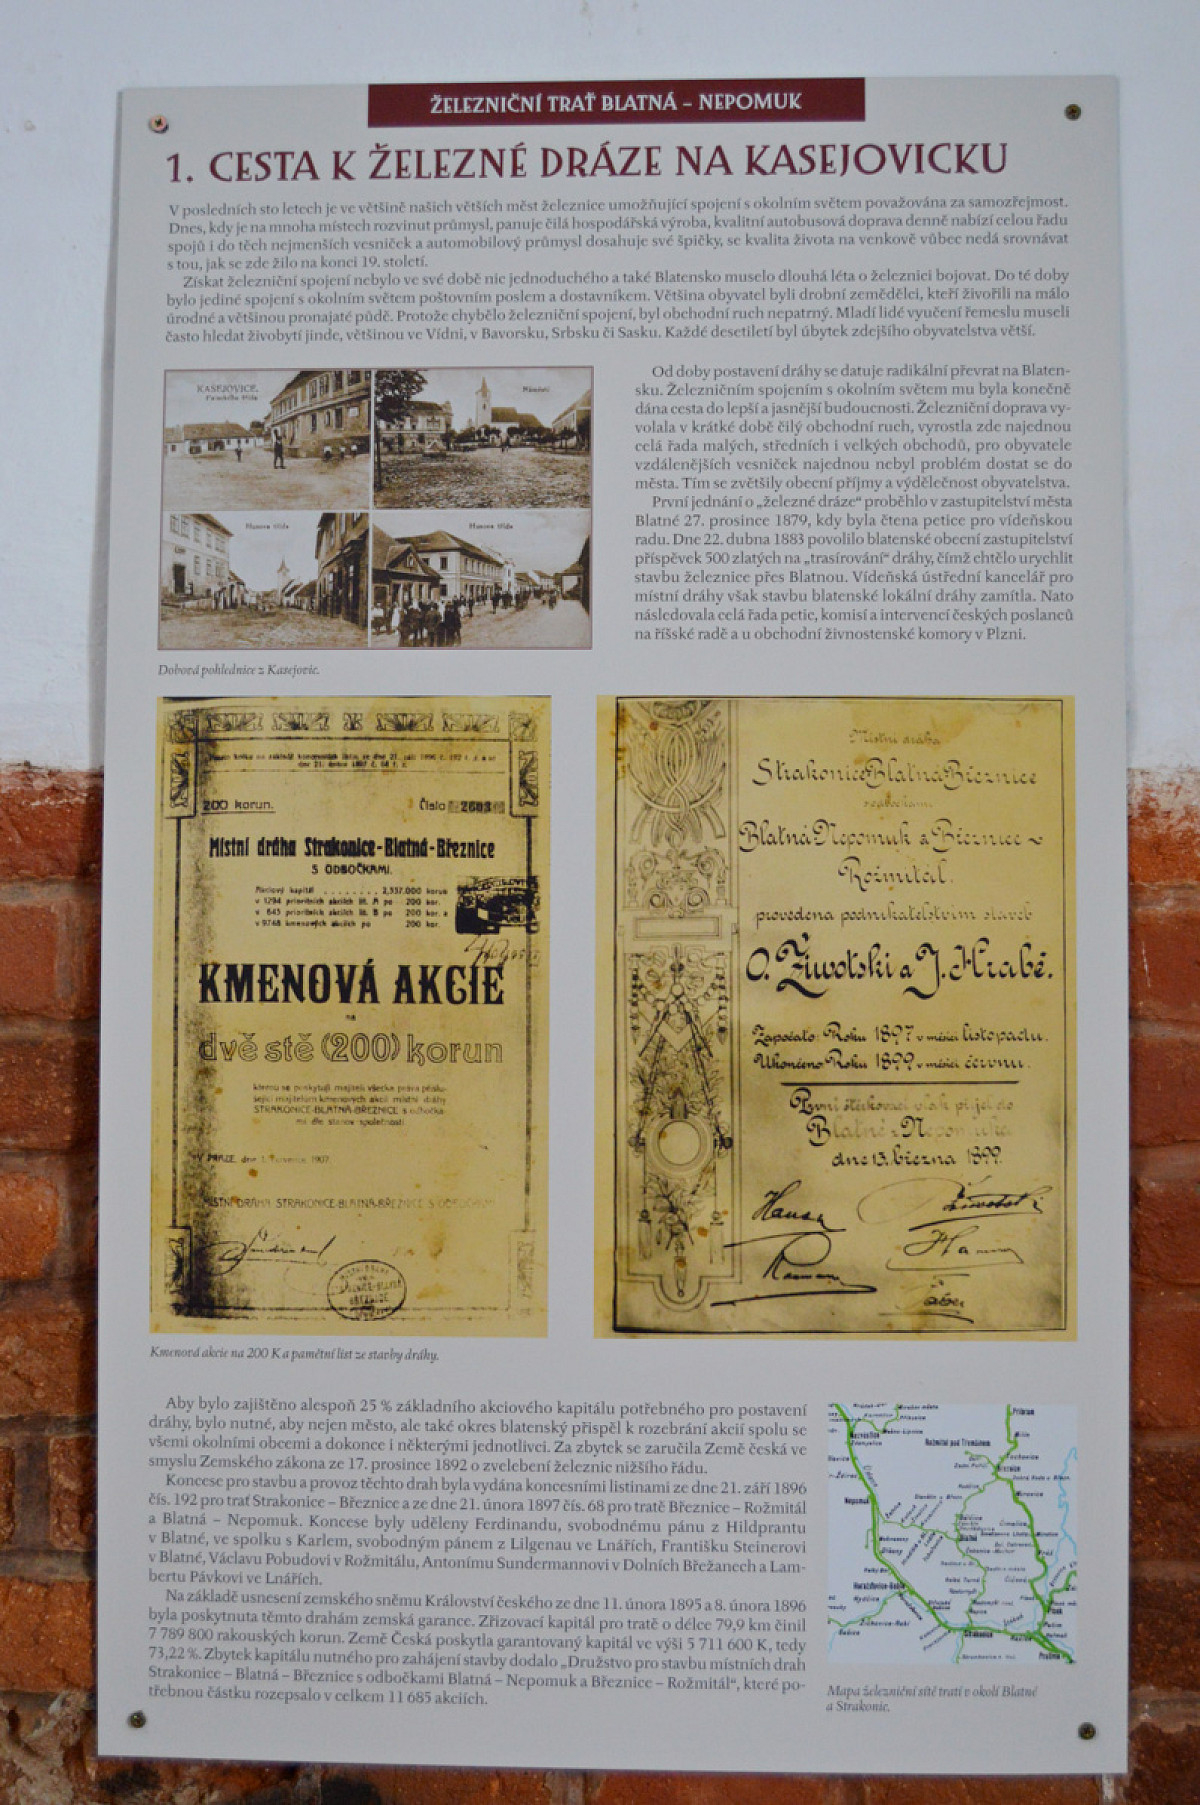 ŽELEZNIČNÍ TRAŤ BLATNÁ – NEPOMUK
1. CESTA K ŽELEZNÉ DRÁZE NA KASEJOVICKU
V posledních sto letech je ve většině našich větších měst železnice umožňující spojení s okolním světem považována za samozřejmost.
Dnes, kdy je na mnoha místech rozvinut průmysl, panuje čilá hospodářská výroba, kvalitní autobusová doprava denně nabízí celou řadu
spojů i do těch nejmenších vesniček a automobilový průmysl dosahuje své špičky, se kvalita života na venkově vůbec nedá srovnávat
s tou, jak se zde žilo na konci 19. století.
Získat železniční spojení nebylo ve své době nic jednoduchého a také Blatensko muselo dlouhá léta o železnici bojovat. Do té doby
bylo jediné spojení s okolním světem poštovním poslem a dostavníkem. Většina obyvatel byli drobní zemědělci, kteří živořili na málo
úrodné a většinou pronajaté půdě. Protože chybělo železniční spojení, byl obchodní ruch nepatrný. Mladí lidé vyučení řemeslu museli
často hledat živobytí jinde, většinou ve Vídni, v Bavorsku, Srbsku či Sasku. Každé desetiletí byl úbytek zdejšího obyvatelstva větší.
KASEJOVICE.
Náměstí
Husova třída
Husova třída
Dobová pohlednice z Kasejovic.
Od doby postavení dráhy se datuje radikální převrat na Blaten-
sku. Železničním spojením s okolním světem mu byla konečně
dána cesta do lepší a jasnější budoucnosti. Železniční doprava vy-
volala v krátké době čilý obchodní ruch, vyrostla zde najednou
celá řada malých, středních i velkých obchodů, pro obyvatele
vzdálenějších vesniček najednou nebyl problém dostat se do
města. Tím se zvětšily obecní příjmy a výdělečnost obyvatelstva.
První jednání o „železné dráze“ proběhlo v zastupitelství města
Blatné 27. prosince 1879, kdy byla čtena petice pro vídeňskou
radu. Dne 22. dubna 1883 povolilo blatenské obecní zastupitelství
příspěvek 500 zlatých na „trasírování“ dráhy, čímž chtělo urychlit
stavbu železnice přes Blatnou. Vídeňská ústřední kancelář pro
místní dráhy však stavbu blatenské lokální dráhy zamítla. Nato
následovala celá řada petic, komisí a intervencí českých poslanců
na říšské radě a u obchodní živnostenské komory v Plzni.
200 korun.
Číslo
Místní dráha Strakonice-Blatná-Březnice
S ODBOČKAMI.
Akciový kapitál ........ 2,337.000 korun
v 1294 prioritních akciích lit. A po 200 kor.
v 643 prioritních akciích lit. B po 200 kor. a
v 9748 kmenových akciích po 200 kor.
KMENOVÁ AKCIE
na
dvě stě (200) korun
kterou se poskytují majiteli všecka práva příslu-
šející majitelům kmenových akcií místní dráhy
STRAKONICE-BLATNÁ-BŘEZNICE s odbočka-
mi dle stanov společnosti
V PRAZE, dne 1. července 1907.
MÍSTNÍ DRÁHA STRAKONICE-BLATNÁ-BŘEZNICE S ODBOČKAMI
Místní dráha
Strakonice Blatná Březnice
s odbočkami
Blatná-Nepomuk a Březnice
Rožmitál.
provedena podnikatelstvím staveb
O. Životski a J. Hrabě.
Započato: Roku 1897 v měsíci listopadu.
Ukončeno Roku 1899 v měsíci červnu.
První štěrkovací vlak přijel do
Blatné z Nepomuka
dne 13. března 1899.
Kmenová akcie na 200 K a pamětní list ze stavby dráhy.
Aby bylo zajištěno alespoň 25 % základního akciového kapitálu potřebného pro postavení
dráhy, bylo nutné, aby nejen město, ale také okres blatenský přispěl k rozebrání akcií spolu se
všemi okolními obcemi a dokonce i některými jednotlivci. Za zbytek se zaručila Země česká ve
smyslu Zemského zákona ze 17. prosince 1892 o zvelebení železnic nižšího řádu.
Koncese pro stavbu a provoz těchto drah byla vydána koncesními listinami ze dne 21. září 1896
čís. 192 pro trať Strakonice – Březnice a ze dne 21. února 1897 čís. 68 pro tratě Březnice – Rožmitál
a Blatná – Nepomuk. Koncese byly uděleny Ferdinandu, svobodnému pánu z Hildprantu
v Blatné, ve spolku s Karlem, svobodným pánem z Lilgenau ve Lnářích, Františku Steinerovi
v Blatné, Václavu Pobudovi v Rožmitálu, Antonímu Sundermannovi v Dolních Břežanech a Lam-
bertu Pávkovi ve Lnářích.
Na základě usnesení zemského sněmu Království českého ze dne 11. února 1895 a 8. února 1896
byla poskytnuta těmto drahám zemská garance. Zřizovací kapitál pro tratě o délce 79,9 km činil
7 789 800 rakouských korun. Země Česká poskytla garantovaný kapitál ve výši 5 711 600 K, tedy
73,22 %. Zbytek kapitálu nutného pro zahájení stavby dodalo „Družstvo pro stavbu místních drah
Strakonice – Blatná – Březnice s odbočkami Blatná – Nepomuk a Březnice – Rožmitál“, které po-
třebnou částku rozepsalo v celkem 11 685 akciích.
Příbram
Rožmitál pod Třemšínem
Březnice
Nepomuk
Blatná
Strakonice
Mapa železniční sítě tratí v okolí Blatné
a Strakonic.